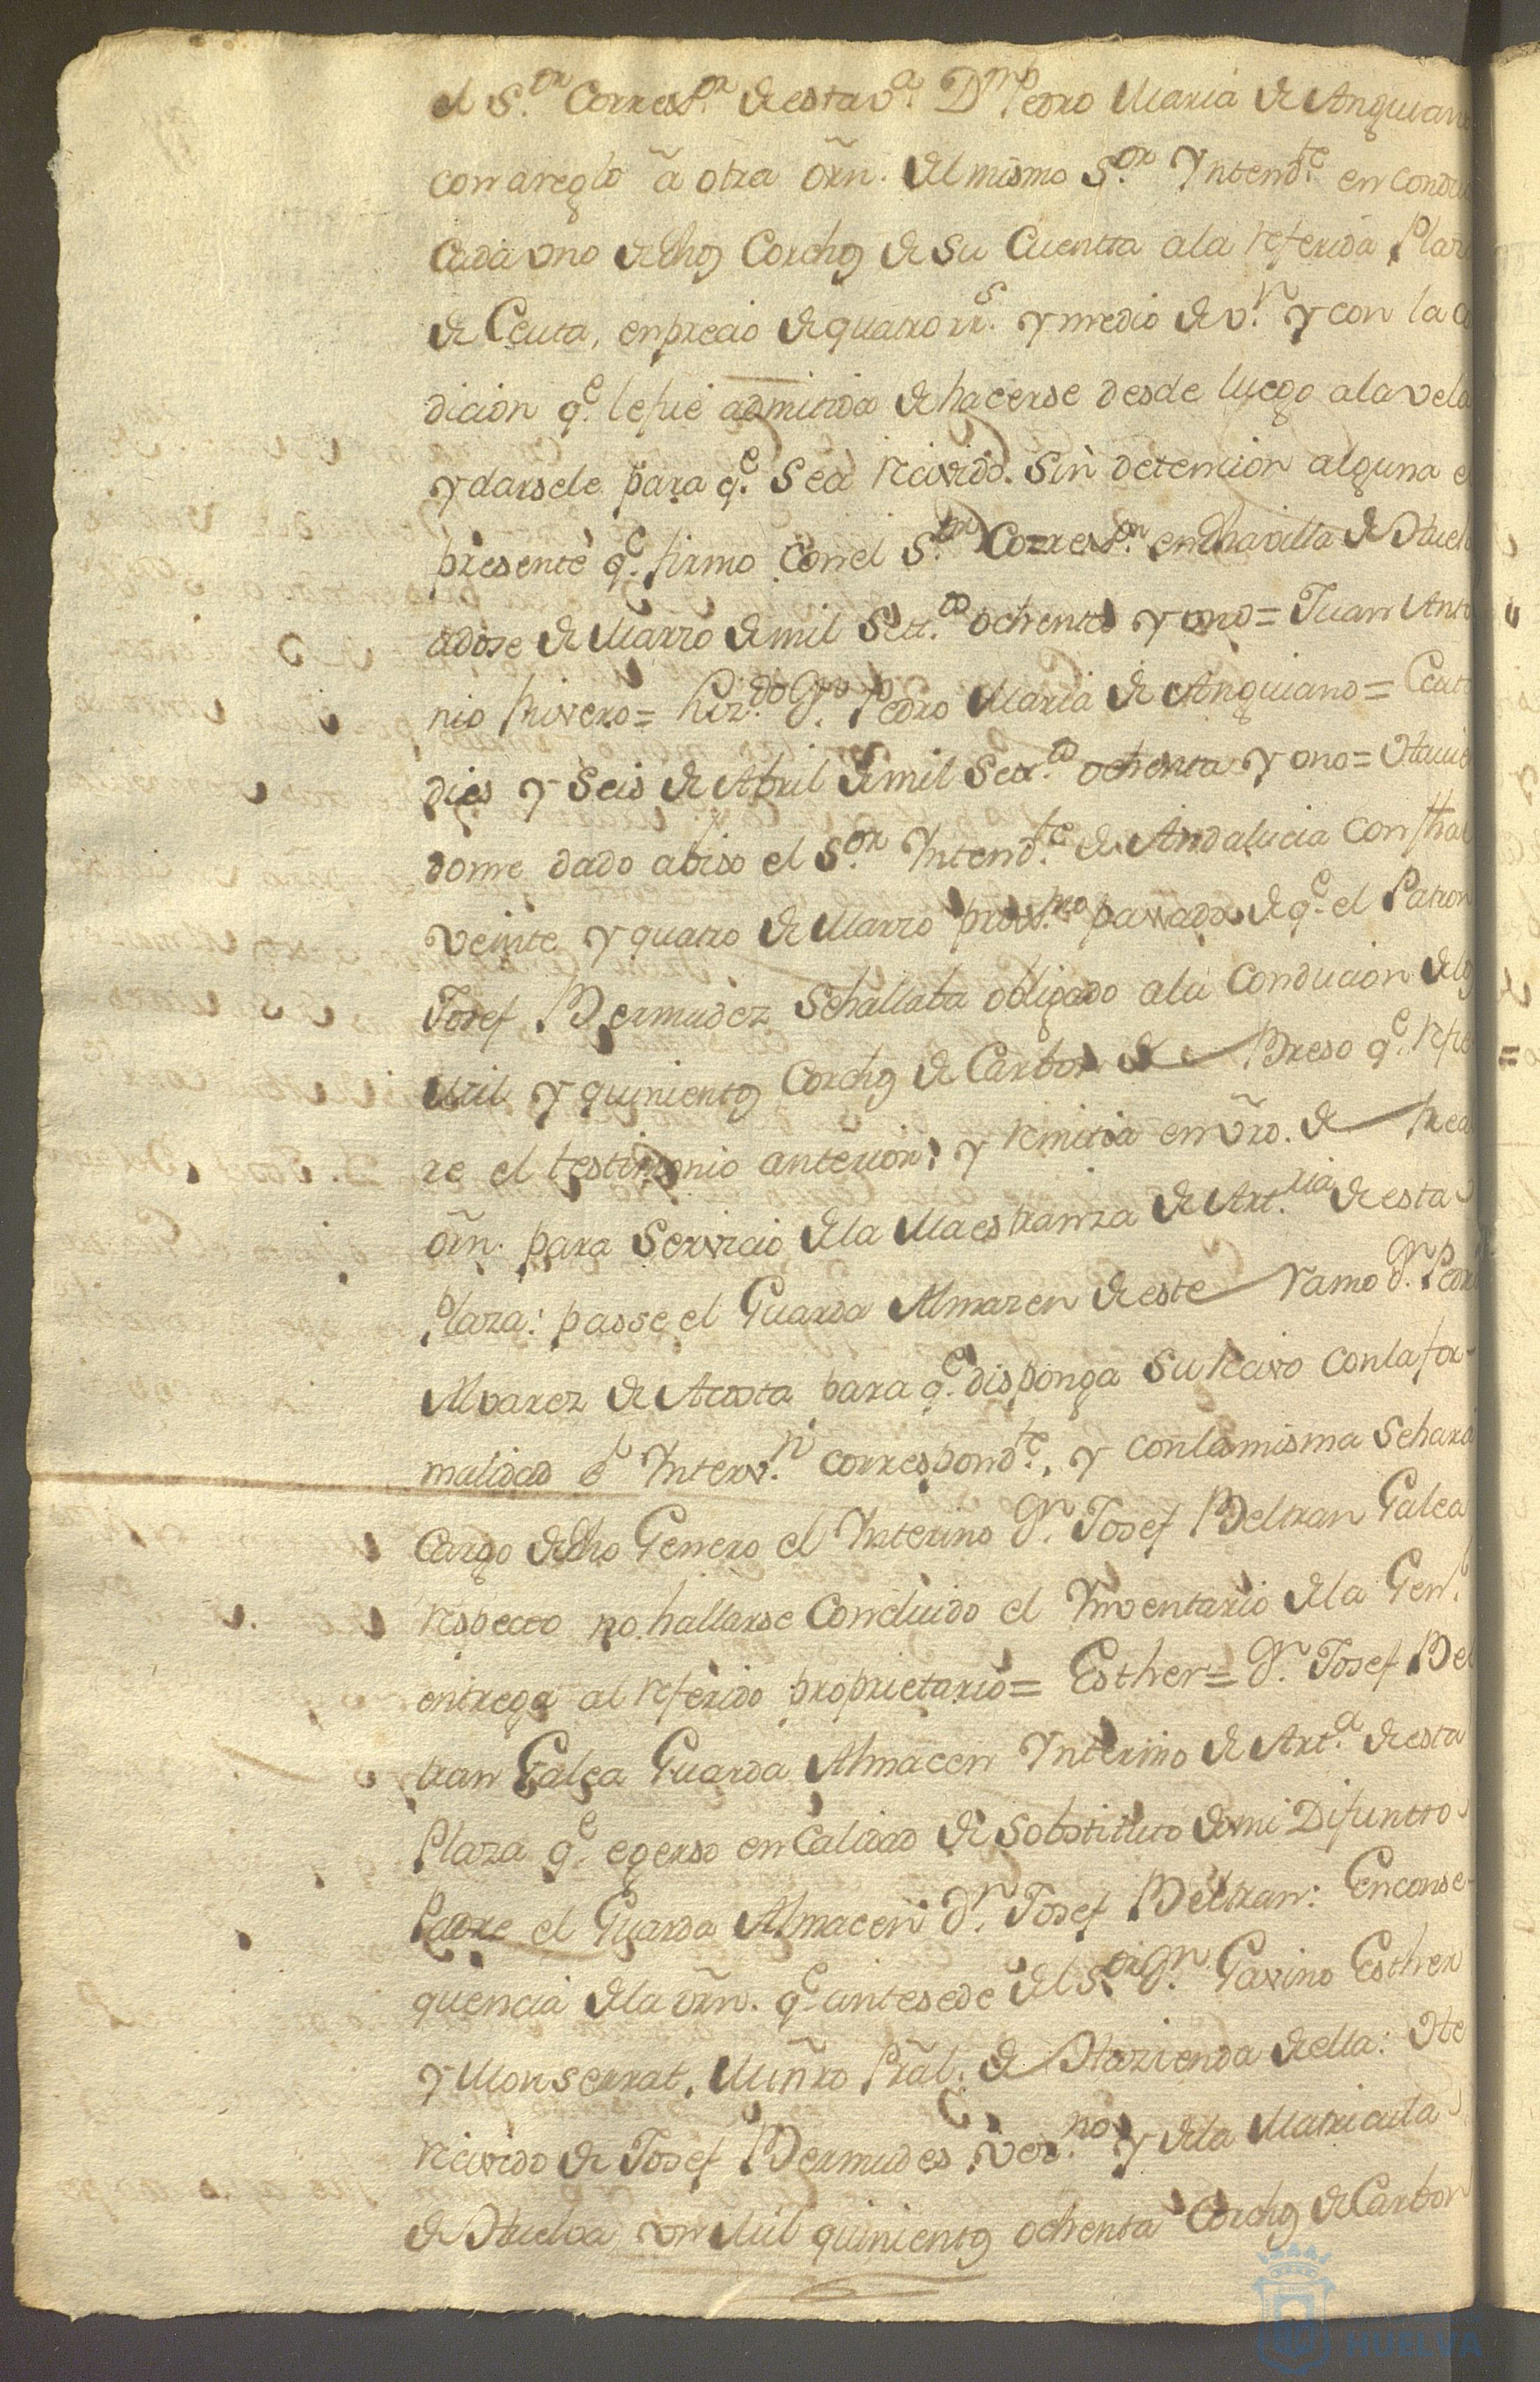 el S.or Corres.or de esta v.a D.n Pedro Maria de Anguian
con areglo â otra õrn. del mismo S.or Yntend.te en condu
cada uno de dhos Corchos de su Cuentta a la referida Plaz
de Ceuta, en precio de quatro rr.s y medio de v.n y con la co
dicion q.e le fue admitida de hacerse desde luego a la vela
y darsele para q.e sea recivido sin detencion alguna el
presente q.e firmo con el S.or Corres.or en dha villa de Huel
a dose de Marzo de mil Sett.os ochenta y uno = Juan Anto
nio Rivero = Liz.do D.n Pedro Maria de Anguiano = Ceut
dies y seis de Abril de mil Set.os ochenta y uno = Havie
dome dado abiso el S.or Yntend.te de Andalucia con fha
veinte y quatro de Marzo prox.mo passado de q.e el Patron
Josef Bermudez se hallaba obligado a la conducion de los
Mil y quinientos Corchos de Carbon de Breso q.e refie
re el testimonio anterior, y remitia en vro. de Real
õrn. para servicio de la Maestranza de Art.ria de esta
Plaza: passe el Guarda Almazen de este ramo d.n Pedr
Alvarez de Acosta para q.e disponga su recivo con la for-
malidad é Yntervn. correspond.te, y con la misma se hara
cargo de dho Genero el Ynterino D.n Josef Beltran Galea
respecto no hallarse concluido el Ynventario de la Gen.l
entrega al referido proprietario = Esther = D.n Josef Bel
tran Galea Guarda Almacen Ynterino de Art.a de esta
Plaza q.e egerso en calidad de sobstituto de mi Difuncto
Padre el Guarda Almacen d.n Josef Beltran: En conse-
quencia de la õrn. q.e antesede del S.or D.n Gavino Esther
y Monserrat, Miñro Prãl. de Hazienda de ella: He
recivido de Josef Bermudes vez.no y de la Matricula
de Huelva un Mil quinientos ochenta Corchos de Carbon
HUELVA